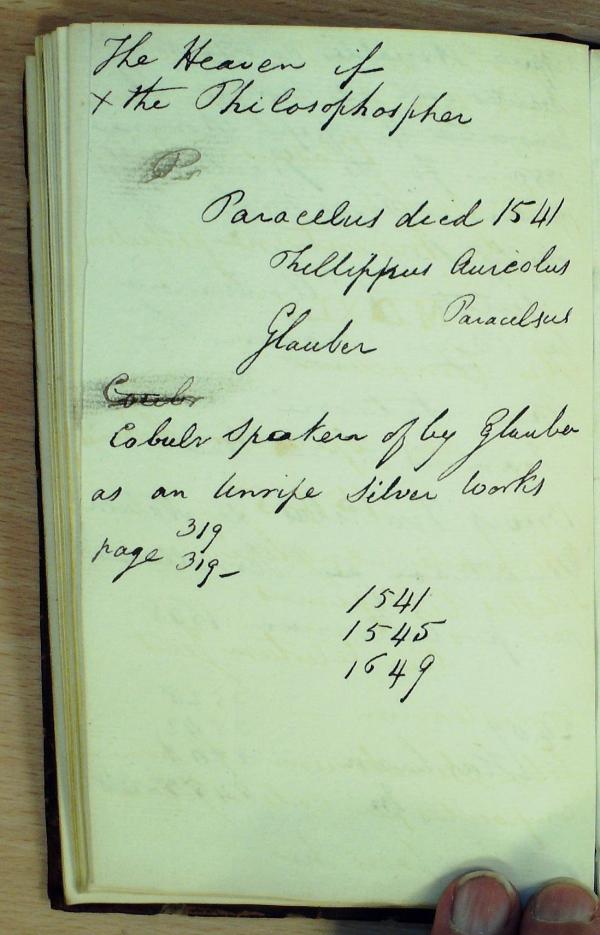 The Heaven if
x the Philosophospher
Paracelsus died 1541
Phillippus Aureolus
Paracelsus
Glauber
Cobulr Spoken of by Glauber
as an Unripe Silver Works
319
page 319-
1541
1545
1649